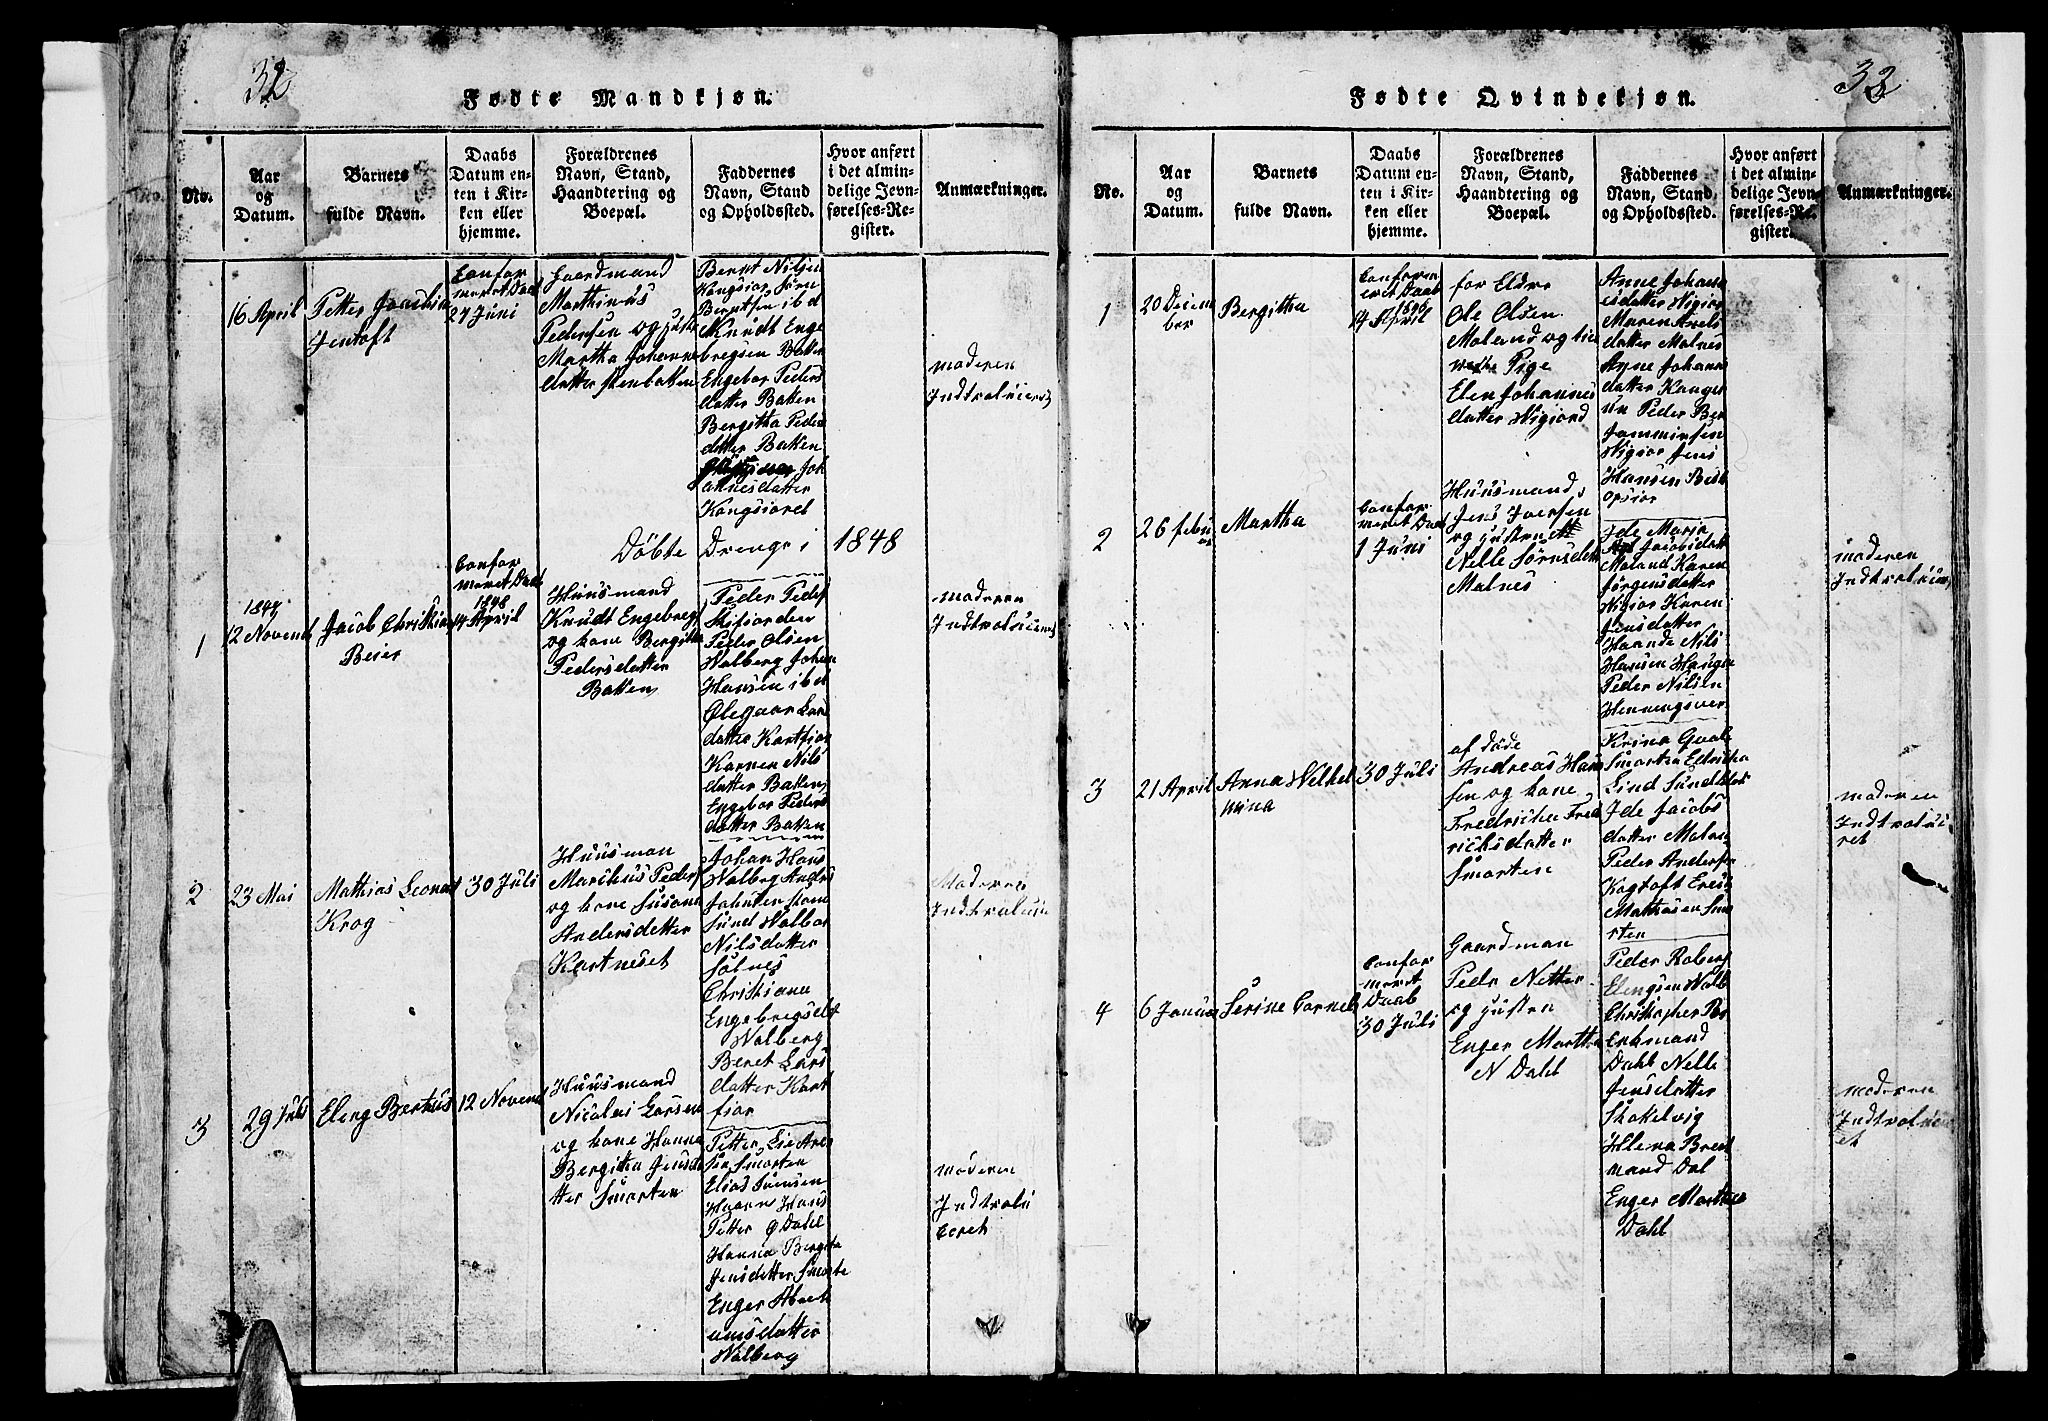 32
Fødte Mandkjøn.
No.
Aar
og
Datum.
Barnets
fulde Navn.
Daabs
Datum en-
ten i Kir-
ken eller
hjemme.
Forældrenes
Navn, Stand,
Haandtering og
Boepæl.
Faddernes
Navn, Stand
og Opholdssted.
Hvor anført
i det almin-
delige Jevn-
førelses-Re-
gister.
Anmærkninger.
16 April
Petter Joachin
Jentoft
Confor
meret Daab
27 Juni
Gaardmand
Marthinus
Pedersen og
Martha Johanne
datter Stenbakken
Bernt Nilsen
Kongsior Sørn
Berntsen ibd
Knudt Enge
bregsen Bakken
Engebor Peders
datter Bakken
Bergitha Peder
datter Bakken
Joh
annesdatter
Kongsioret
moderen
Indtroluieres
Döbte Drenge i 1848
1
1847
12 Novemb
Jacob Christian
Beier
Confor
meret Daab
1848
14 April
Huusmand
Knudt Engebreg
og kone Bergitha
Pedersdatter
Bakken
Peder Peders
Skifiorden
Peder Olsen
Valberg Johan
Hansen ibd
Olegaar Lars
datter Kartfior
Karnen Nils
datter Bakken
Engebor Peders
datter Bakken
moderen
Indtroluieres
2
23 Mai
Mathias Leonart
Krog
30 Juli
Huusman
Marikus Peders
og kone Susana
Andersdatter
Kartneset
Johan Hans
Valberg Andrs
Johnsen Stone
Sund Valbor
Nilsdatter
Solnes
Christiana
Engebregsdat
Valberg
Beret Lars
datter Kart
fior
Moderen
Indtroluie
3
29 Juli
Eleng Berteus
12 Novemb
Huusmand
Nicolai Larsen
og kone Hanna
Bergitha Jensda
tter Smorten
Petter Lie Are
sen Smorten
Elias Svensen
Haavn Hans
Petter Ø Dahl
Hanna Bergita
Jensdatter Smorte
Enger Abrah
amsdatter
Valberg
moderen
Indtrolui
eret
32
Fødte Qvindekjøn.
No.
Aar
og
Datum.
Barnets
fulde Navn.
Daabs
Datum en-
ten i Kir-
ken eller
hjemme.
Forældrenes
Navn, Stand,
Haandtering og
Boepæl.
Faddernes
Navn, Stand
og Opholdssted.
Hvor anført
i det almin-
delige Jevn-
førelses-Re-
gister.
Anmærkninger.
1
20 Decem
ber
Bergitha
Conform
eret Daab
14 April
for Eldre
Ole Olsen
Moland og tie
Pige
Elen Johannes
datter Nigiord
Anne Johann
esdatter Nigior
Maren Axels
datter Malnes
Anne Johann
datter Kange
un Peder Ben
Jamminsen
Nigior Jens
Hansen Best
opsior
2
26 febru
ar
Martha
Confor
meret Daab
1 Juni
Huusmand
Jens Iversen
og Hustru
Nelle Sörnsdatt
Malnes
Ide Marja
Jacobsdatt
Moland Karen
Jörgensdatter
Nigior Karen
Jensdatter
Haande Nils
Hansen Hangu
Peder Nilsen
Henningsver
moderen
Indtroluieres
3
21 April
Anna Velhel
mina
30 Juli
af døde
Andreas Han
sen og kone
Fredricha Fred
richsdatter
Smorten
Krina Qvale
Smorten Edricha
Lind Sundklak
Ide Jacobs
datter Malne
Peder Anderse
Kogtoft Eres
Mathiasen Smo
rten
moderen
Indtrolui
ret
4
6 Janua
Serine Cornel
Confor
meret
Daab
30 Juli
Gaardman
Peder Netter
og Husten
Enger Martha
N Dahl
Peder Roberg
Elengsen Valb
Christopher Br
enkmand
Dahl Nelle
Jensdatter
Skokelvig
Helena Brenk
mand Dal
Enger Marthe
Dahl
moderen
Indtroluier
et